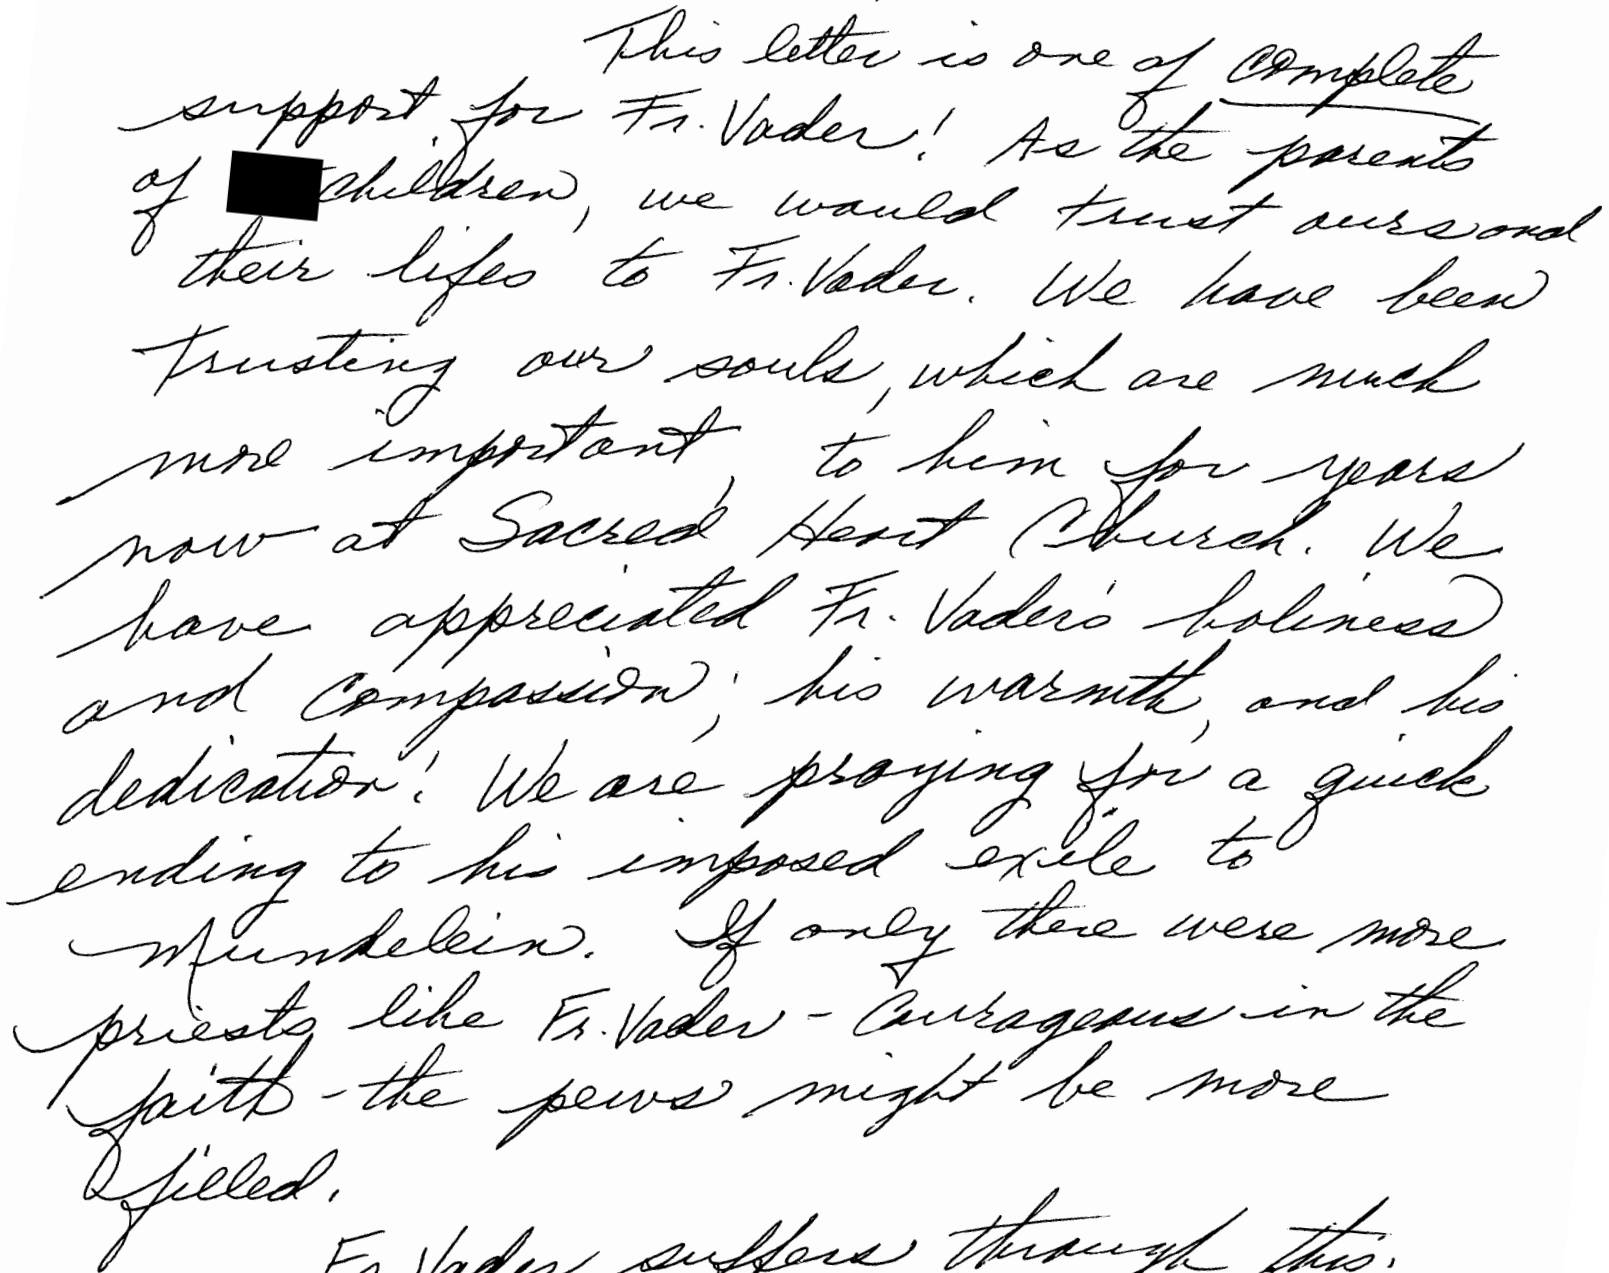 This letter is one of complete
support for Fr. Vader! As the parents
of children, we would trust ours and
their lifes to Fr. Vader. We have been
trusting our souls, which are much
more important, to him for years
now at Sacred Heart Church. We
have appreciated Fr. Vader's holiness
and compassion; his warmth, and his
dedication! We are praying for a quick
ending to his imposed exile to
Mundelein. If only there were more
priests like Fr. Vader - courageous in the
faith - the pews might be more
filled.
Fr. Vader suffers through this.